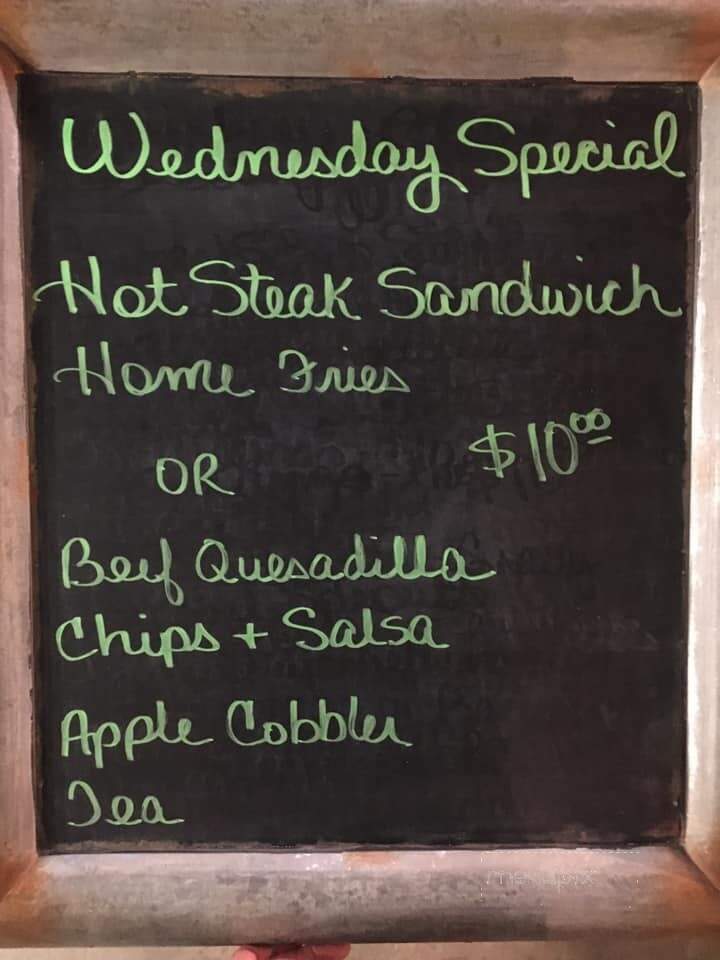 Wednesday Special
Hot Steak Sandwich
Home Fries
$10.00
OR
Beef Quesadilla
Chips + Salsa
Apple Cobbler
Tea